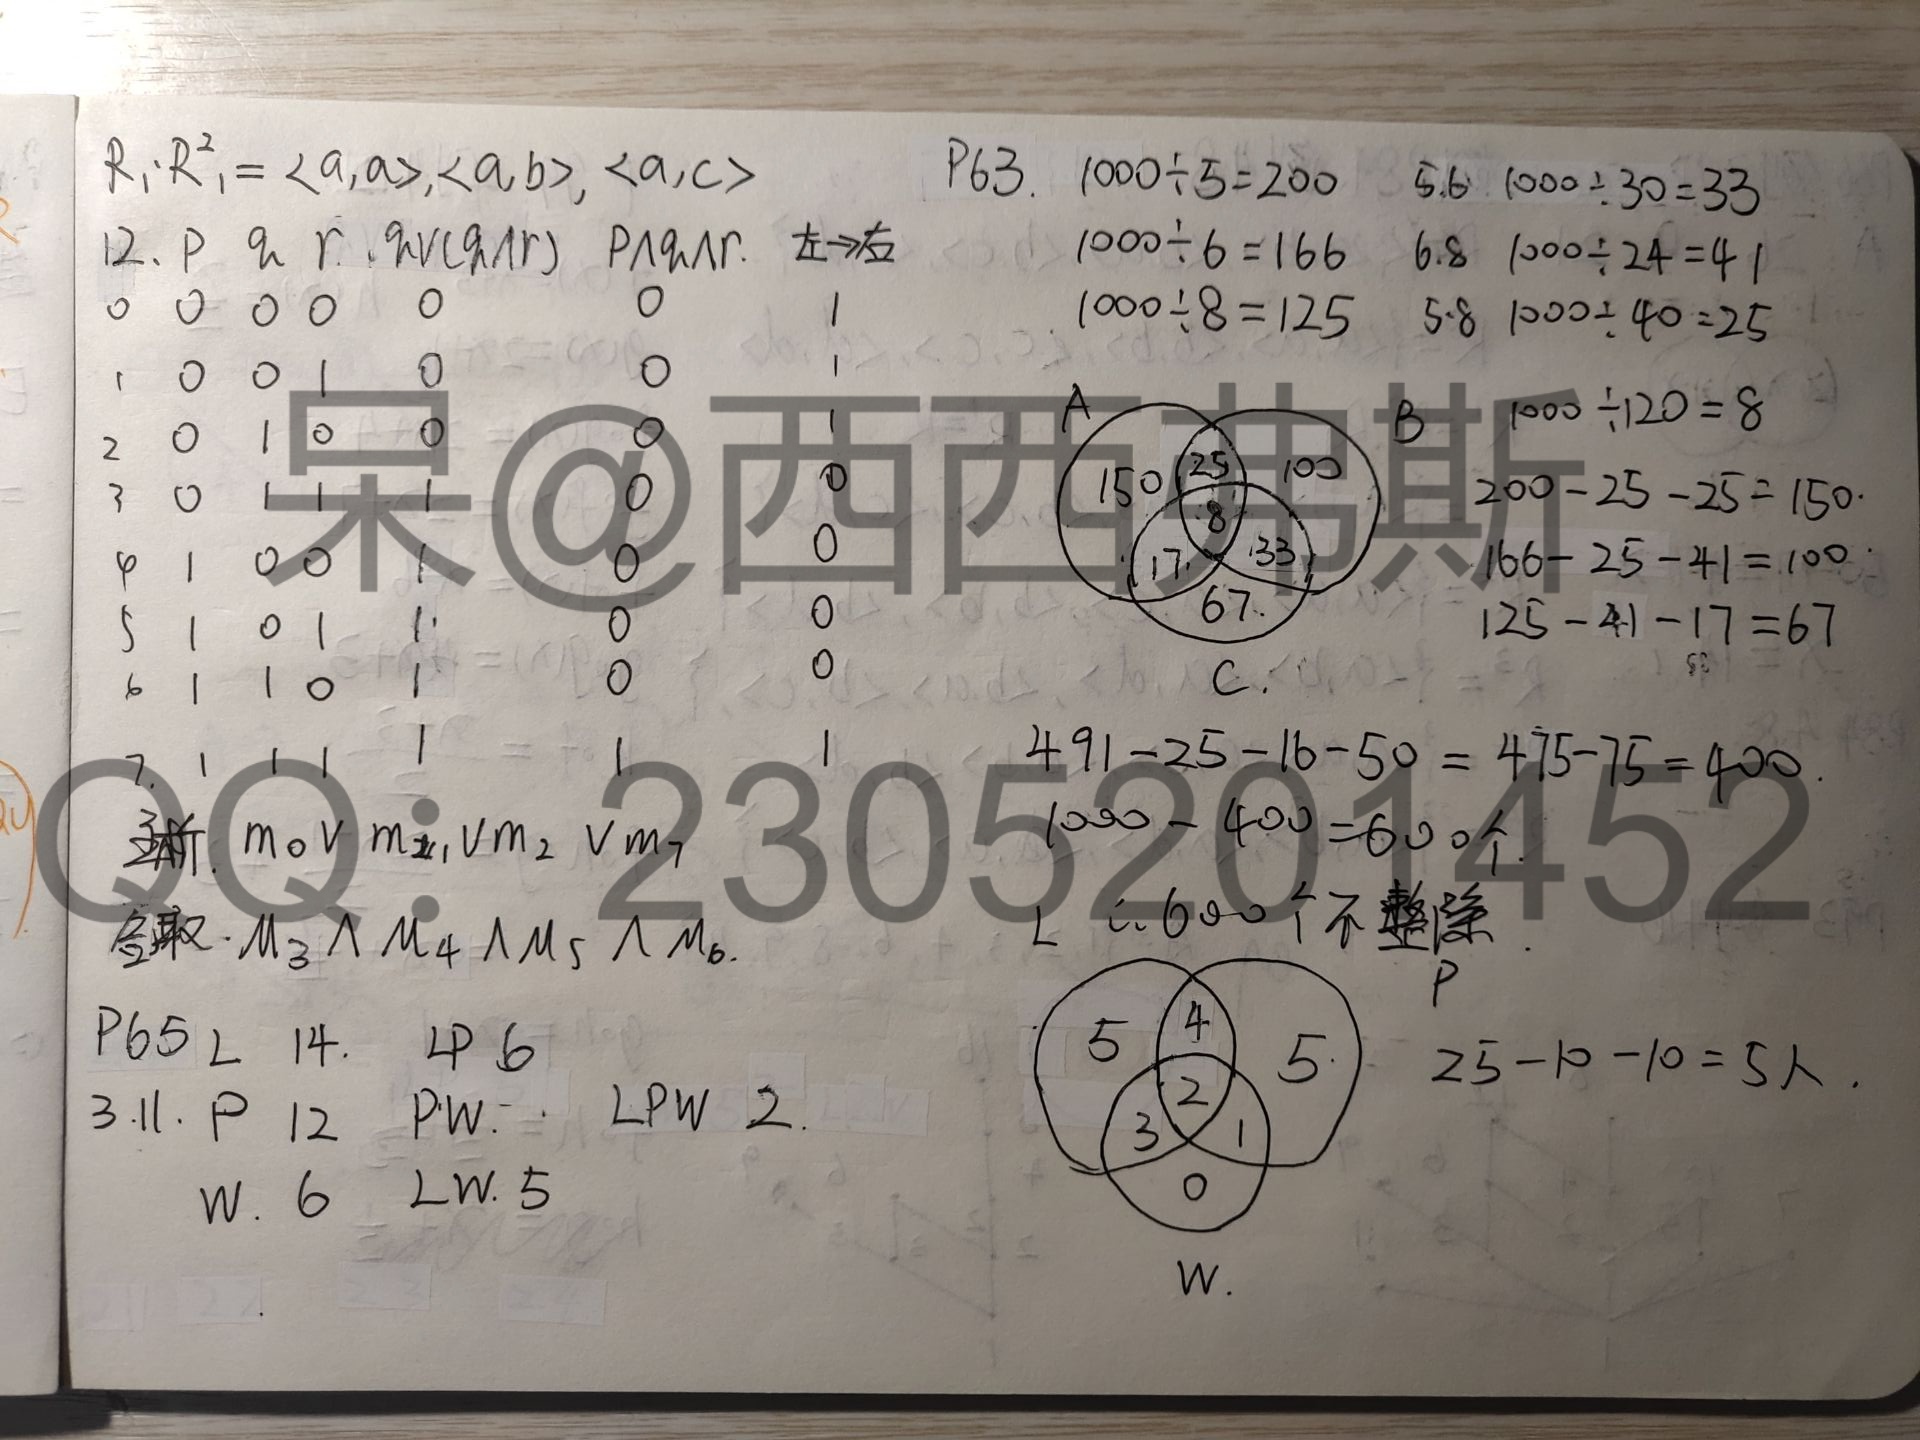 R₁·R₁² = <a,a>,<a,b>,<a,c>
12. P q r. qV(q∧r) P∧q∧r. 左→右
0 0 0 0 0 0 1
1 0 0 1 0 0 1
2 0 1 0 0 0 1
3 0 1 1 1 0 0
4 1 0 0 1 0 0
5 1 0 1 1. 0 0
6 1 1 0 1 0 0
7. 1 1 1 1 1 1
主析. m₀ V m₁ V m₂ V m₇
合取. M₃ ∧ M₄ ∧ M₅ ∧ M₆.
P65 L 14. LP 6
3.11. P 12 PW. LPW 2.
W. 6 LW. 5
P63. 1000÷5=200 5.6 1000÷30=33
1000÷6=166 6.8 1000÷24=41
1000÷8=125 5.8 1000÷40=25
A B 1000÷120=8
150 25 100
8
17. 33
67.
C.
200-25-25=150.
166-25-41=100.
125-41-17=67
33
491-25-16-50 = 475-75=400.
1000-400=600个.
∴600个不整除.
L P
5 4 5.
2
3 1
0
W.
25-10-10=5人.
呆@西西弗斯
QQ: 2305201452